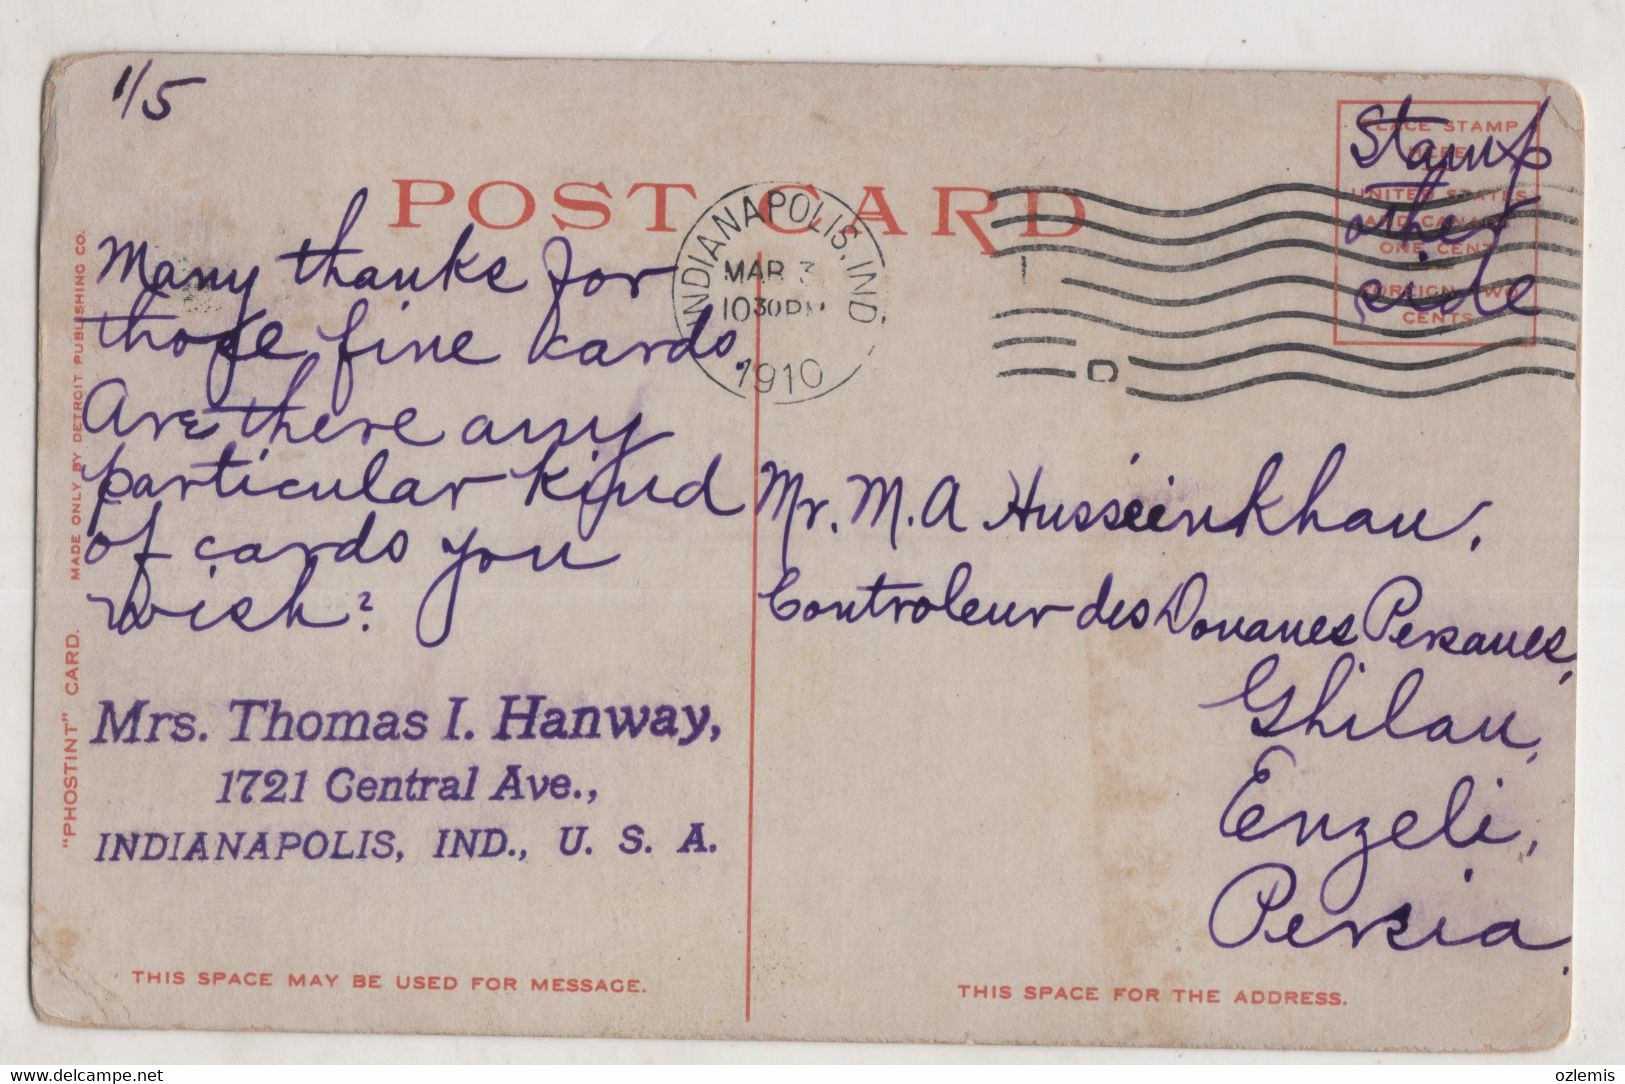 1/5
POST CARD
Stamp
other
side
PLACE STAMP
HERE
UNITED STATES
AND CANADA
ONE CENT
FOREIGN TWO
CENTS
INDIANAPOLIS, IND.
MAR 3
10 30 PM
1910
D
Many thanks for
those fine cards.
Are there any
particular kind
of cards you
wish?
Mrs. Thomas I. Hanway,
1721 Central Ave.,
INDIANAPOLIS, IND., U. S. A.
Mr. M. A Husseinkhan,
Controleur des Douanes Persanes,
Ghilan,
Enzeli,
Persia.
"PHOSTINT" CARD. MADE ONLY BY DETROIT PUBLISHING CO.
THIS SPACE MAY BE USED FOR MESSAGE.
THIS SPACE FOR THE ADDRESS.
www.delcampe.net
ozlemis